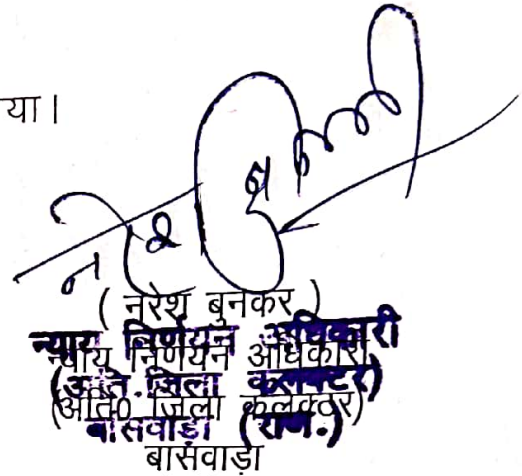 या।
( नरेश बुनकर )
न्याय निर्णयन अधिकारी
न्याय निर्णयन अधिकारी
(अति. जिला कलक्टर)
(अति0 जिला कलक्टर)
बांसवाड़ा (राज.)
बांसवाड़ा